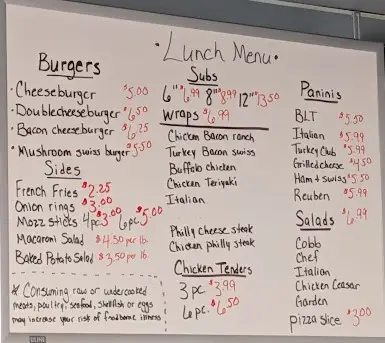 ·Lunch Menu·
Burgers
·Cheeseburger $5.00
·Doublecheeseburger $6.50
·Bacon cheeseburger $6.25
·Mushroom swiss burger $5.50
Sides
French Fries $2.25
Onion rings $3.00
Mozz sticks 4pc $3.00 6pc $5.00
Macaroni Salad $4.50 per lb.
Baked Potato Salad $3.50 per lb.
* Consuming raw or undercooked
meats, poultry, seafood, shellfish or eggs
may increase your risk of foodborne illness
Subs
6" $6.99 8" $8.99 12" $13.50
Wraps $6.99
Chicken Bacon ranch
Turkey Bacon swiss
Buffalo chicken
Chicken Teriyaki
Italian
Philly cheese steak
Chicken philly steak
Chicken Tenders
3 pc $3.99
6 pc. $6.50
Paninis
BLT $5.50
Italian $5.99
Turkey Club $5.99
Grilled cheese $4.50
Ham + swiss $5.50
Reuben $5.99
Salads $6.99
Cobb
Chef
Italian
Chicken Ceasar
Garden
Pizza slice $3.00